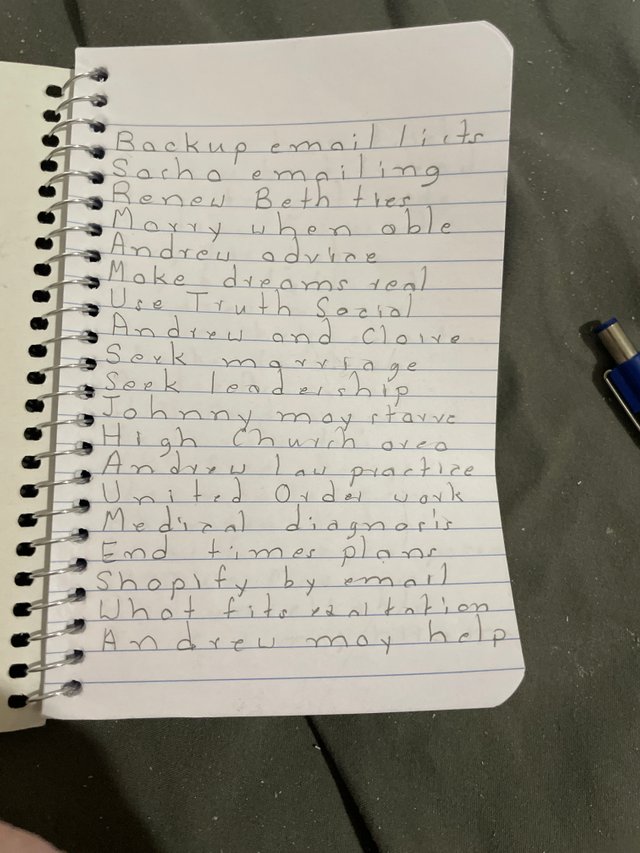 Backup email lists
Sacha emailing
Renew Beth ties
Marry when able
Andrew advice
Make dreams real
Use Truth Social
Andrew and Claire
Seek marriage
Seek leadership
Johnny may starve
High Church area
Andrew law practice
United Order work
Medical diagnosis
End times plans
Shopify by email
What fits exaltation
Andrew may help